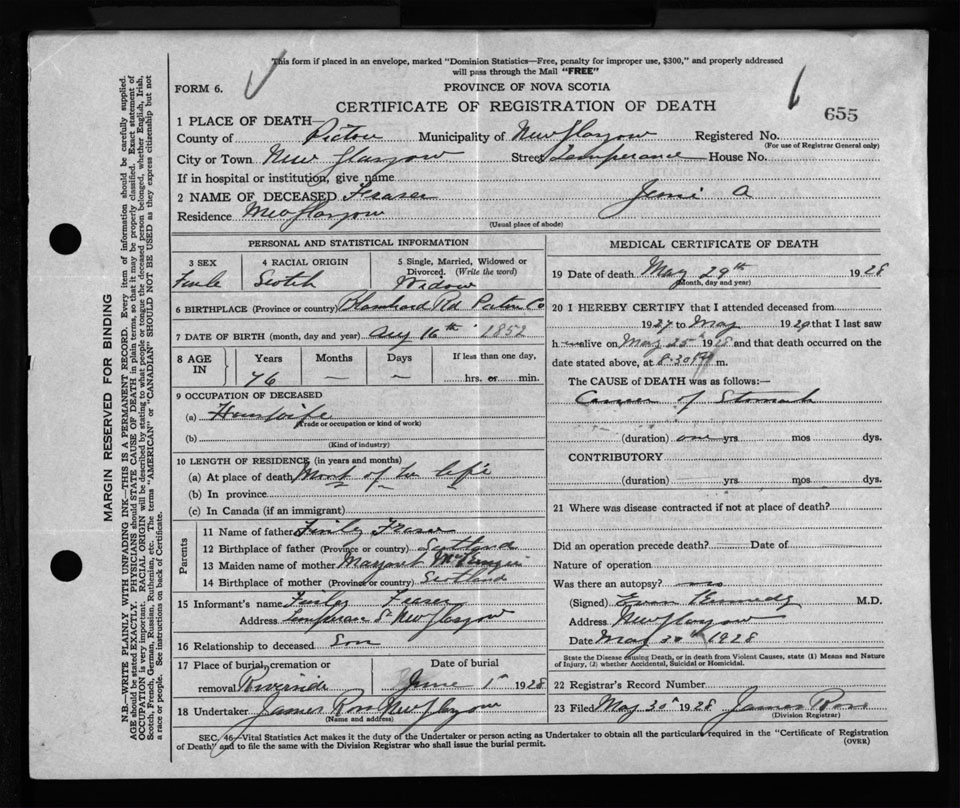 This form if placed in an envelope, marked "Dominion Statistics—Free, penalty for improper use, $300," and properly addressed
will pass through the Mail "FREE"
FORM 6.
PROVINCE OF NOVA SCOTIA
CERTIFICATE OF REGISTRATION OF DEATH
655
1 PLACE OF DEATH—
County of Pictou Municipality of New Glasgow Registered No.
(For use of Registrar General only)
City or Town New Glasgow Street Temperance House No.
If in hospital or institution, give name
2 NAME OF DECEASED Fraser Jennie A
Residence New Glasgow
(Usual place of abode)
PERSONAL AND STATISTICAL INFORMATION
3 SEX 4 RACIAL ORIGIN 5 Single, Married, Widowed or Divorced. (Write the word)
Female Scotch Widow
6 BIRTHPLACE (Province or country) Blanchard Rd Pictou Co
7 DATE OF BIRTH (month, day and year) Aug 16th 1852
8 AGE IN Years Months Days If less than one day,
76 — — hrs. or min.
9 OCCUPATION OF DECEASED
(a) Housewife
(Trade or occupation or kind of work)
(b)
(Kind of industry)
10 LENGTH OF RESIDENCE (in years and months)
(a) At place of death Most of her life
(b) In province
(c) In Canada (if an immigrant)
Parents
11 Name of father Finlay Fraser
12 Birthplace of father (Province or country) Scotland
13 Maiden name of mother Margaret
14 Birthplace of mother (Province or country) Scotland
15 Informant's name Finlay Fraser
Address Temperance St New Glasgow
16 Relationship to deceased Son
17 Place of burial, cremation or Date of burial
removal Riverside June 1st 1928
18 Undertaker James Ross New Glasgow
(Name and address)
MEDICAL CERTIFICATE OF DEATH
19 Date of death May 29th 1928
(Month, day and year)
20 I HEREBY CERTIFY that I attended deceased from
1927 to May 1928 that I last saw
h alive on May 25th 1928 and that death occurred on the
date stated above, at 8.30 P m.
The CAUSE of DEATH was as follows:—
Cancer of Stomach
(duration) one yrs. mos dys.
CONTRIBUTORY
(duration) yrs. mos. dys.
21 Where was disease contracted if not at place of death?
Did an operation precede death? Date of
Nature of operation
Was there an autopsy? no
(Signed) Evan Kennedy M.D.
Address New Glasgow
Date May 30th 1928
State the Disease causing Death, or in death from Violent Causes, state (1) Means and Nature
of Injury, (2) whether Accidental, Suicidal or Homicidal.
22 Registrar's Record Number
23 Filed May 30th 1928 James Ross
(Division Registrar)
SEC. 46—Vital Statistics Act makes it the duty of the Undertaker or person acting as Undertaker to obtain all the particulars required in the "Certificate of Registration
of Death" and to file the same with the Division Registrar who shall issue the burial permit.
(OVER)
MARGIN RESERVED FOR BINDING
N.B.—WRITE PLAINLY WITH UNFADING INK—THIS IS A PERMANENT RECORD. Every item of information should be carefully supplied.
AGE should be stated EXACTLY. PHYSICIANS should STATE CAUSE OF DEATH in plain terms, so that it may be properly classified. Exact statement of
OCCUPATION is very important. RACIAL ORIGIN will be described by stating to what people or tongue the deceased person belonged, whether English, Irish,
Scotch, French, German, Russian, Ruthenian, etc. The terms "AMERICAN" or "CANADIAN" SHOULD NOT BE USED as they express citizenship but not
a race or people. See instructions on back of Certificate.